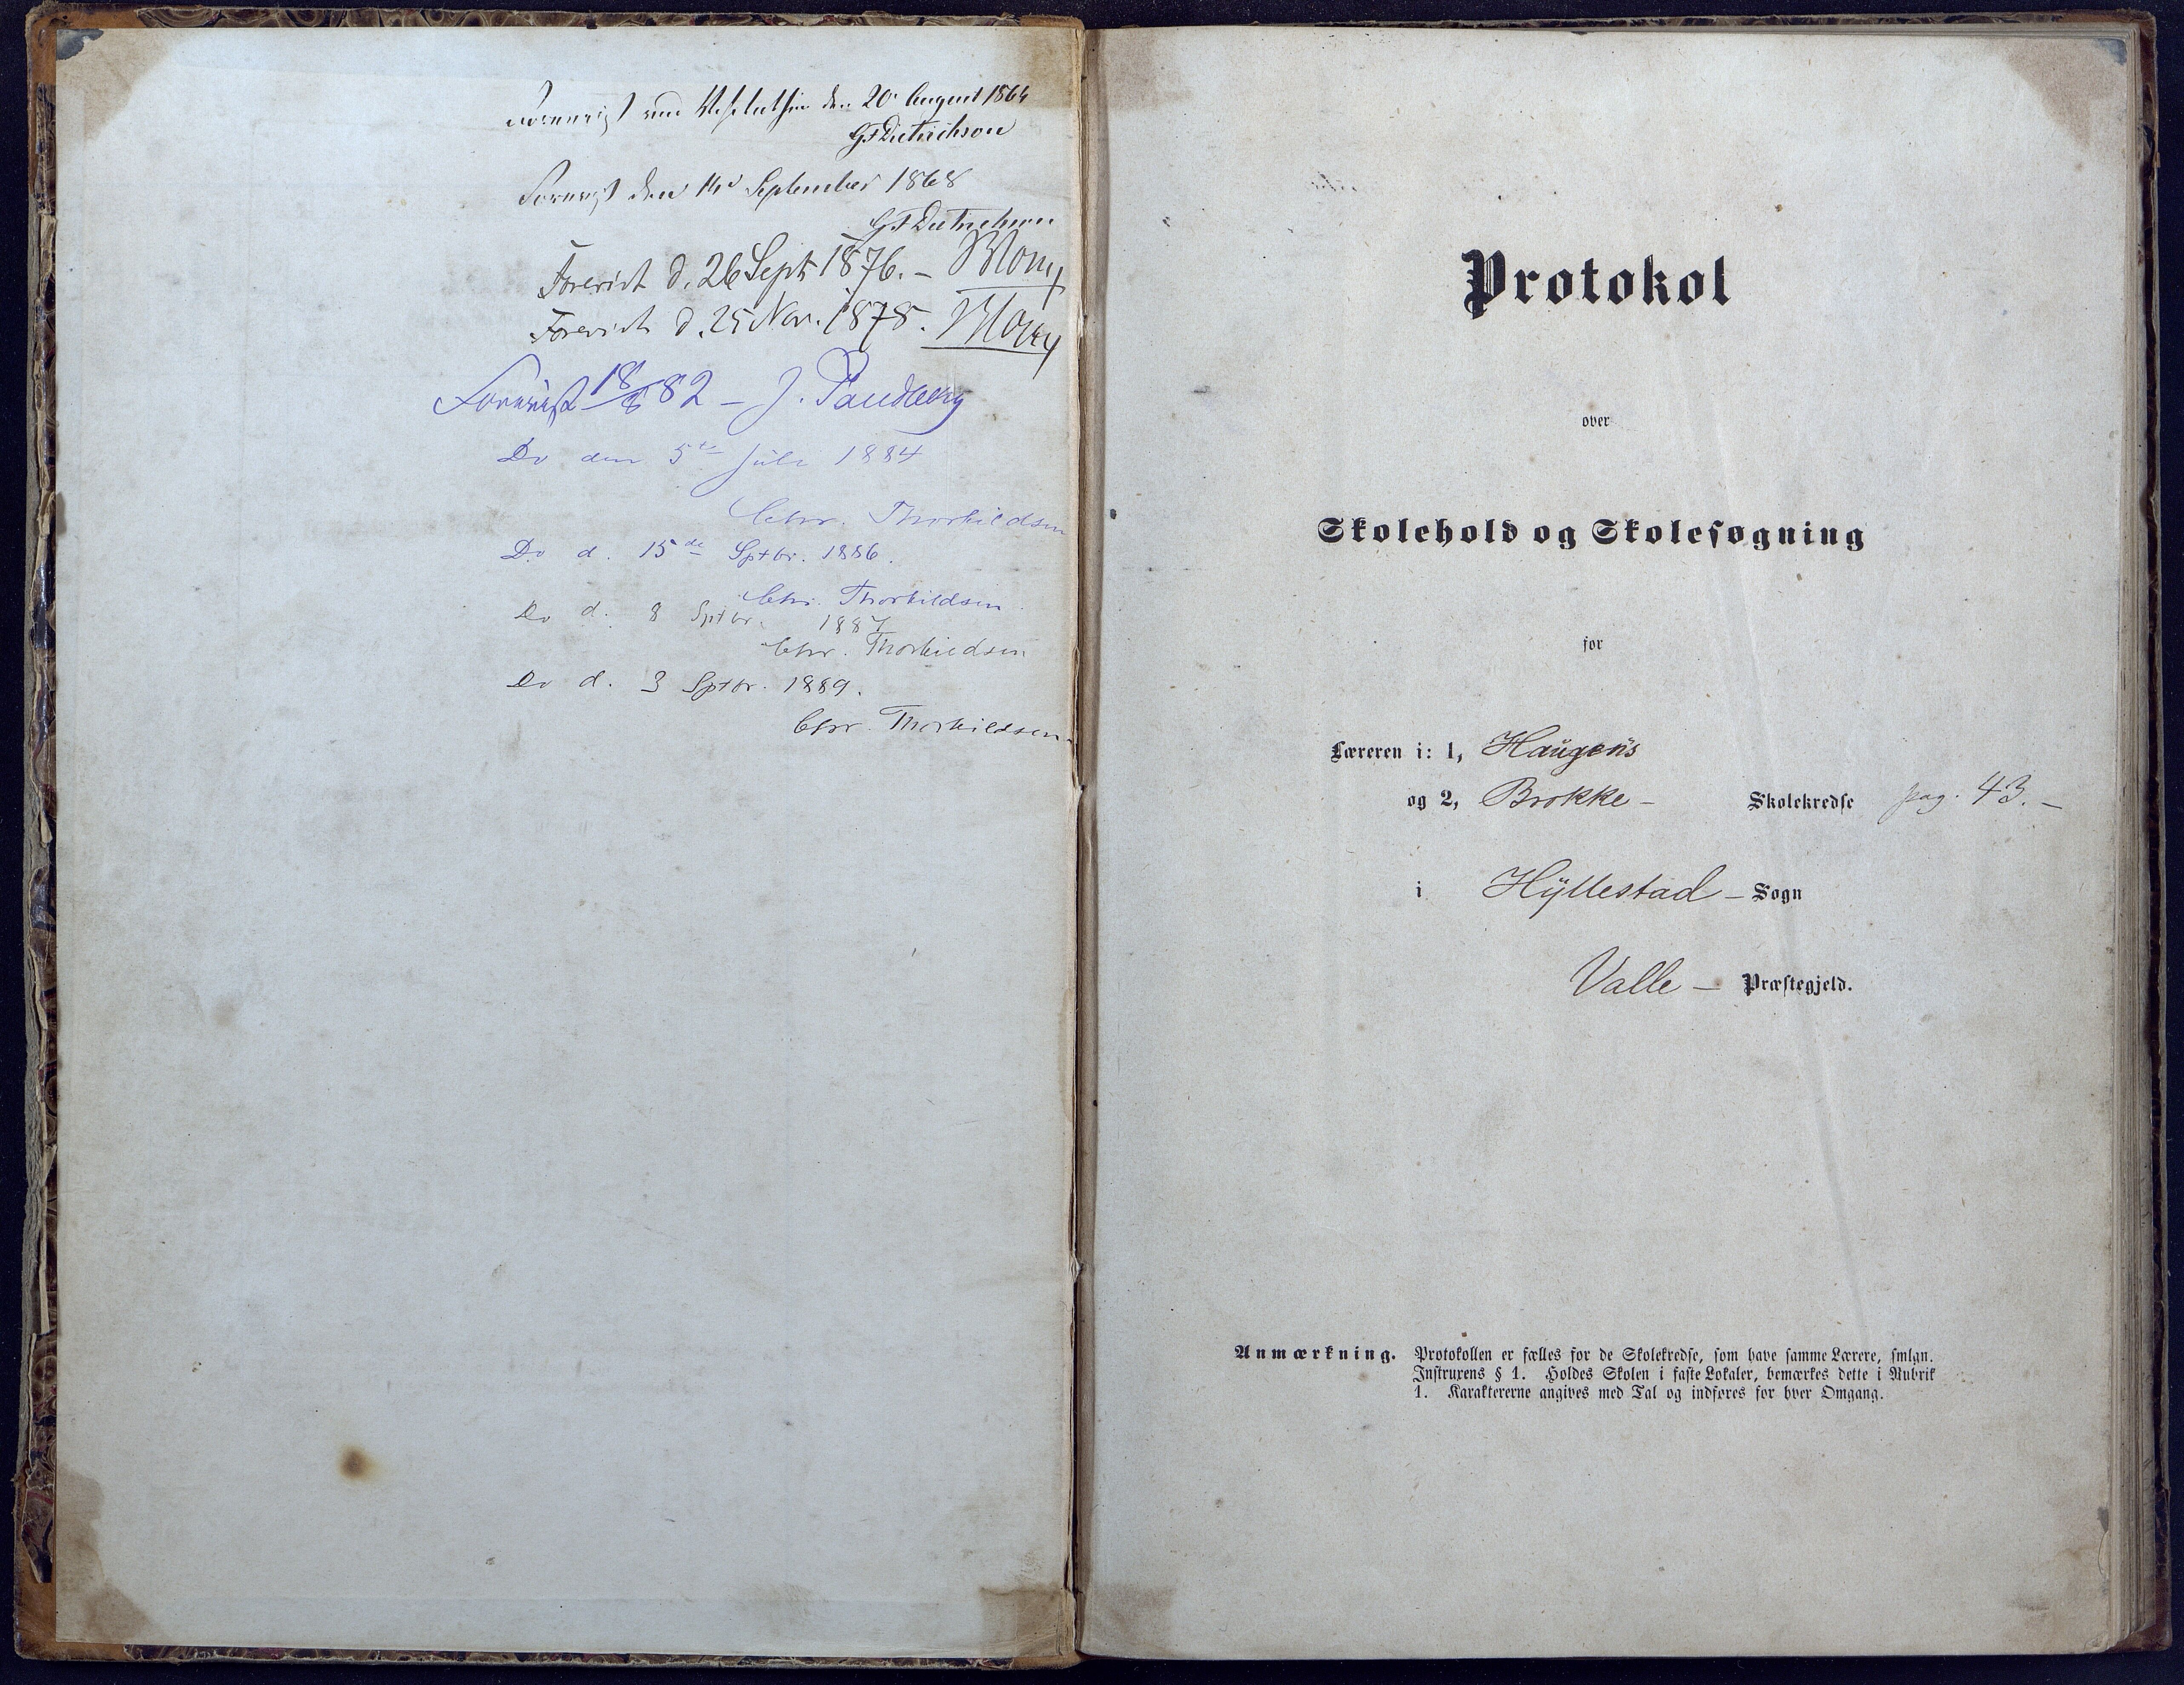 Forevist ved Visitatsen den 20 August 1864
GFDietrichson
Forevist den 14 September 1868
GFDietrichson
Forevist d. 26 Sept 1876. –
Forevist d. 25 Nov. 1878.
Forevist 18/8 82 – J.
Do den 5te Juli 1884
Chr. Thorkildsen
Do d. 15de Sptbr. 1886.
Chr. Thorkildsen
Do d. 8 Sptbr. 1887
Chr. Thorkildsen
Do d. 3 Sptbr. 1889.
Chr. Thorkildsen
Protokol
over
Skolehold og Skolesøgning
for
Læreren i: 1, Haugens
og 2, Brokke – Skolekredse pag. 43. –
i Hyllestad – Sogn
Valle – Præstegjeld.
Anmærkning. Protokollen er fælles for de Skolekredse, som have samme Lærere, smlgn.
Instruxens § 1. Holdes Skolen i faste Lokaler, bemærkes dette i Rubrik
1. Karaktererne angives med Tal og indføres for hver Omgang.